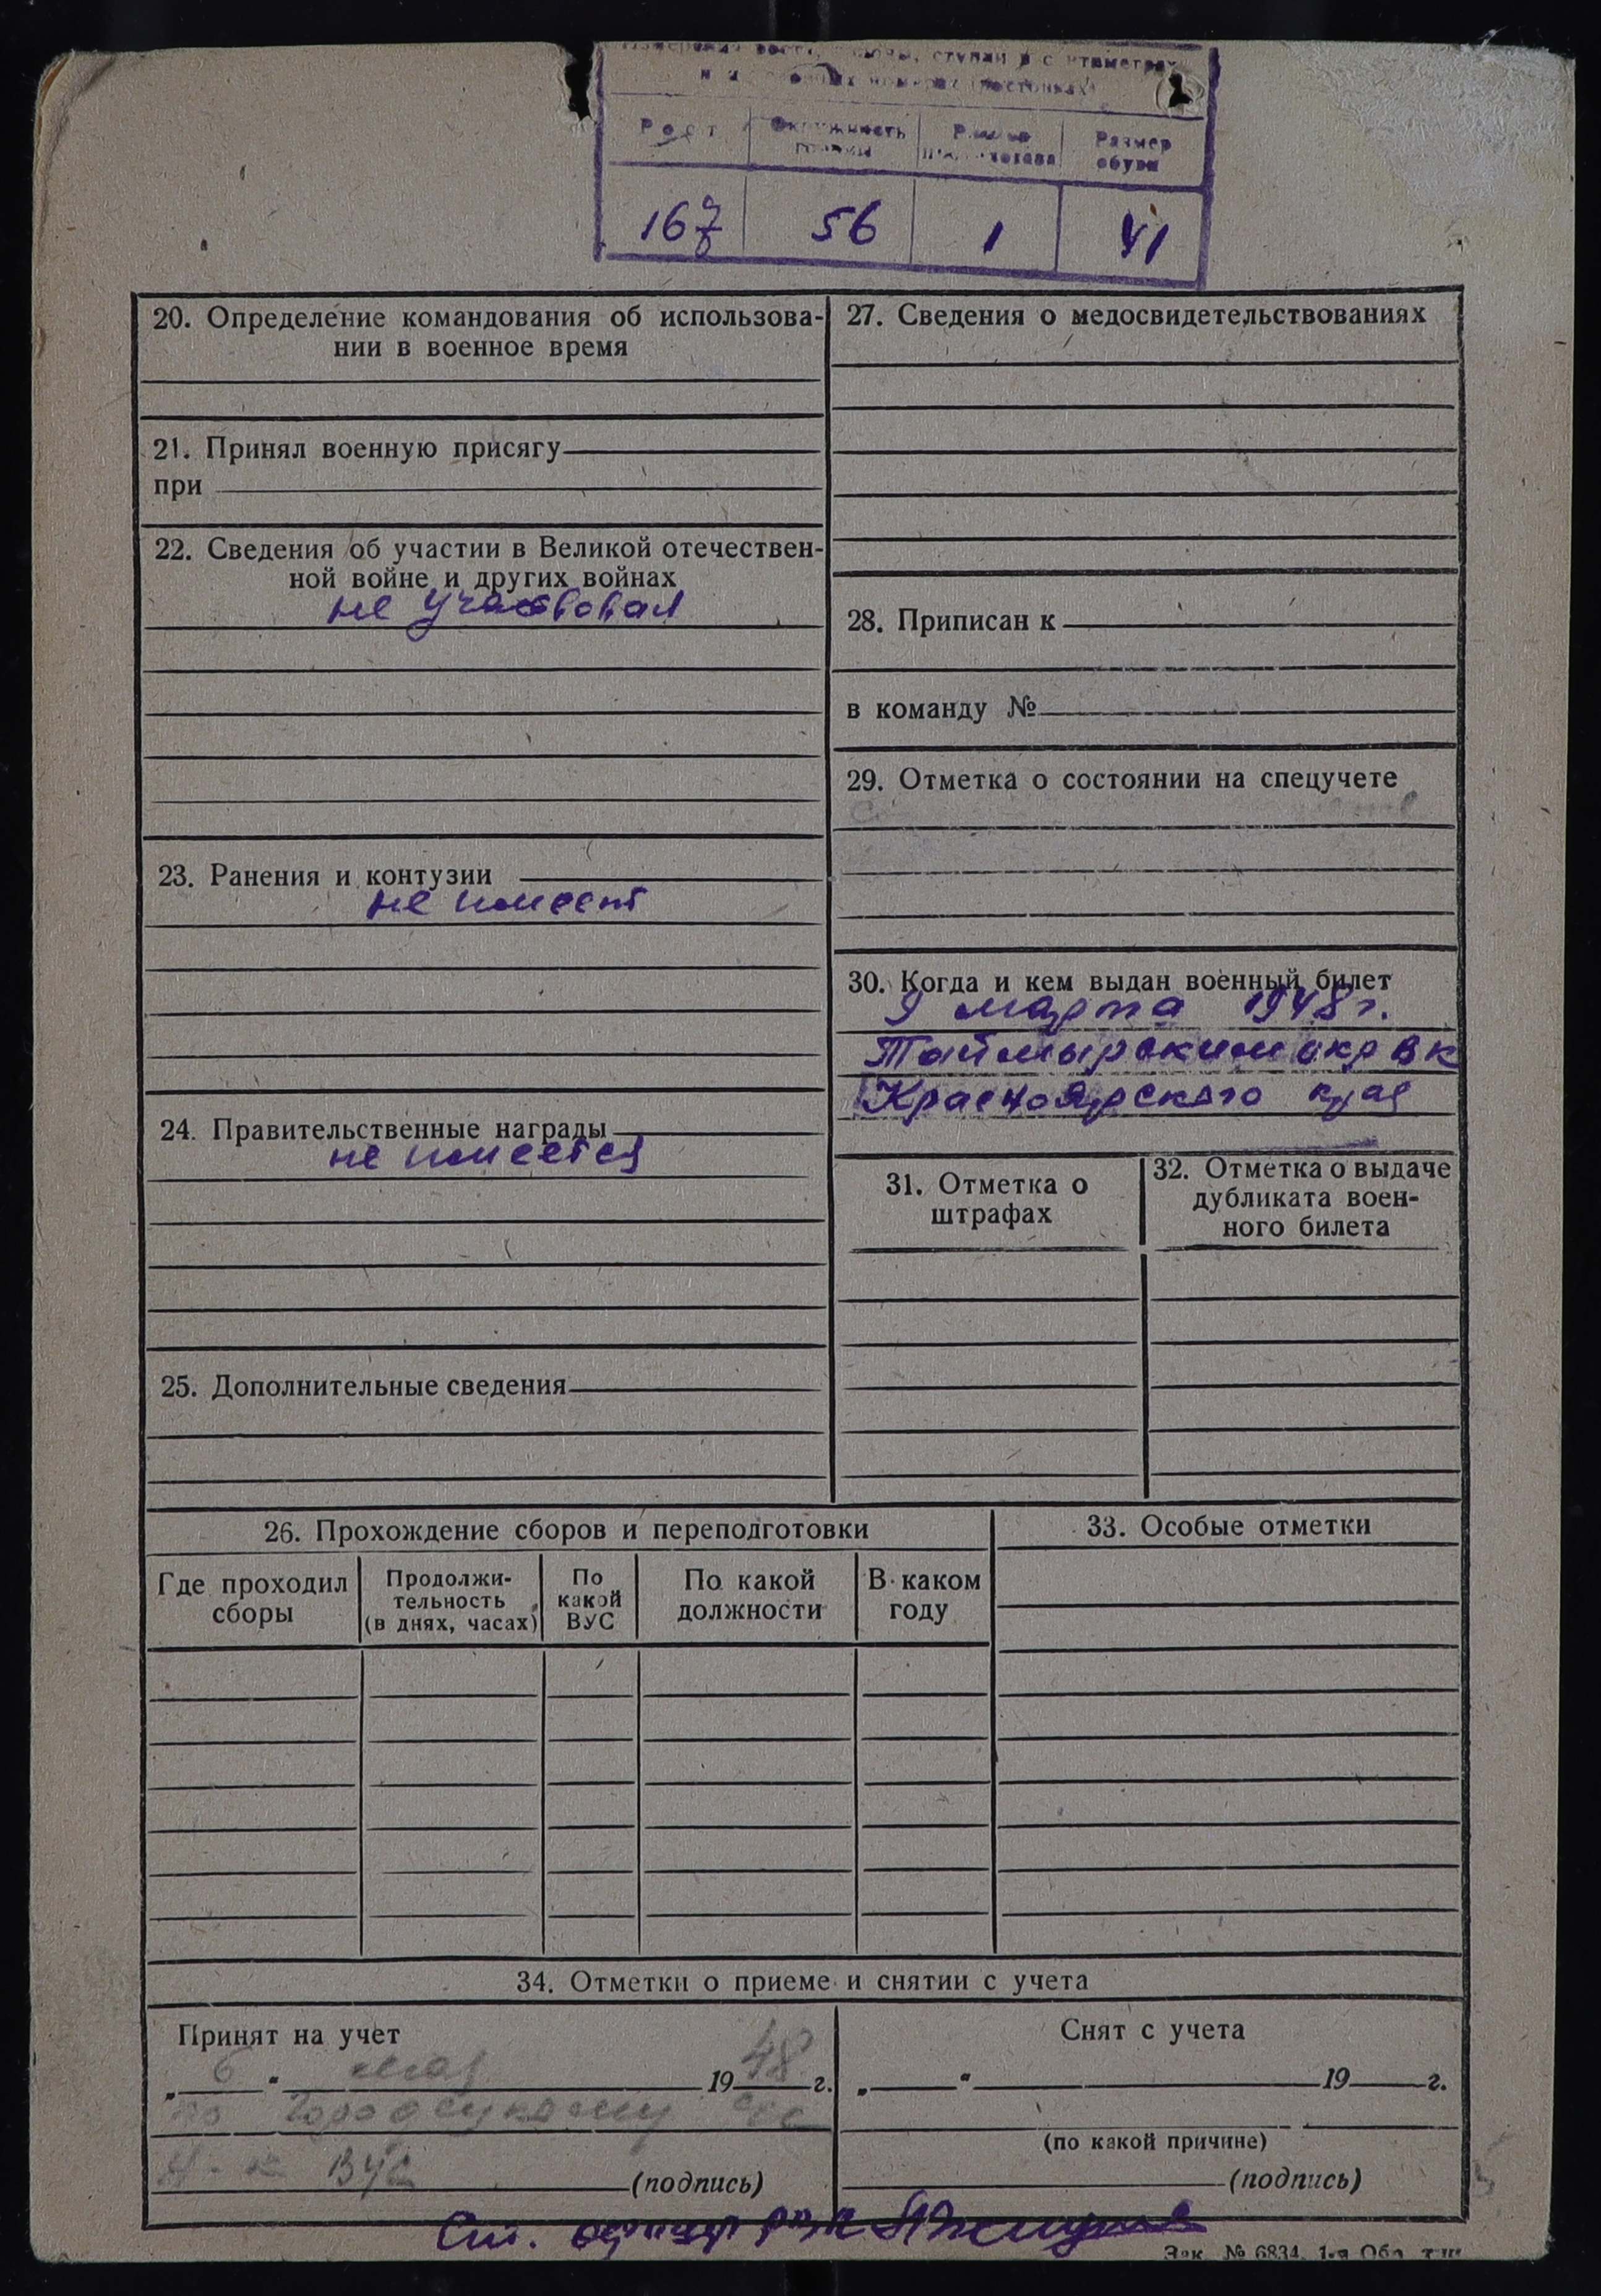 Рост
Окружность головы
Размер
Размер обуви
167
56
1
41
20. Определение командования об использова-
нии в военное время
21. Принял военную присягу
при
22. Сведения об участии в Великой отечествен-
ной войне и других войнах
не участвовал
23. Ранения и контузии
не имеет
24. Правительственные награды
не имеется
25. Дополнительные сведения
27. Сведения о медосвидетельствованиях
28. Приписан к
в команду №
29. Отметка о состоянии на спецучете
30. Когда и кем выдан военный билет
9 марта 1948 г.
Таймырским окр в к
Красноярского края
31. Отметка о
штрафах
32. Отметка о выдаче
дубликата воен-
ного билета
26. Прохождение сборов и переподготовки
Где проходил
сборы
Продолжи-
тельность
(в днях, часах)
По
какой
ВУС
По какой
должности
В каком
году
33. Особые отметки
34. Отметки о приеме и снятии с учета
Принят на учет
„ 6 “ мая 1948 г.
по
ВУС
(подпись)
Снят с учета
„ “ 19 г.
(по какой причине)
(подпись)
Ст.
Зак. № 6834. 1-я Обл. тип.